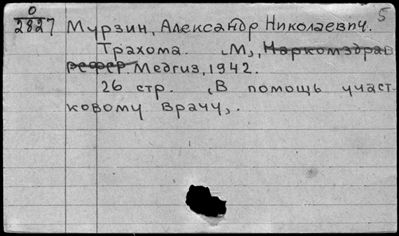 5
О
2827 Мурзин, Александр Николаевич.
Трахома. (М), Наркомздрав
РСФСР. Медгиз, 1942.
26 стр. (В помощь участ-
ковому врачу).